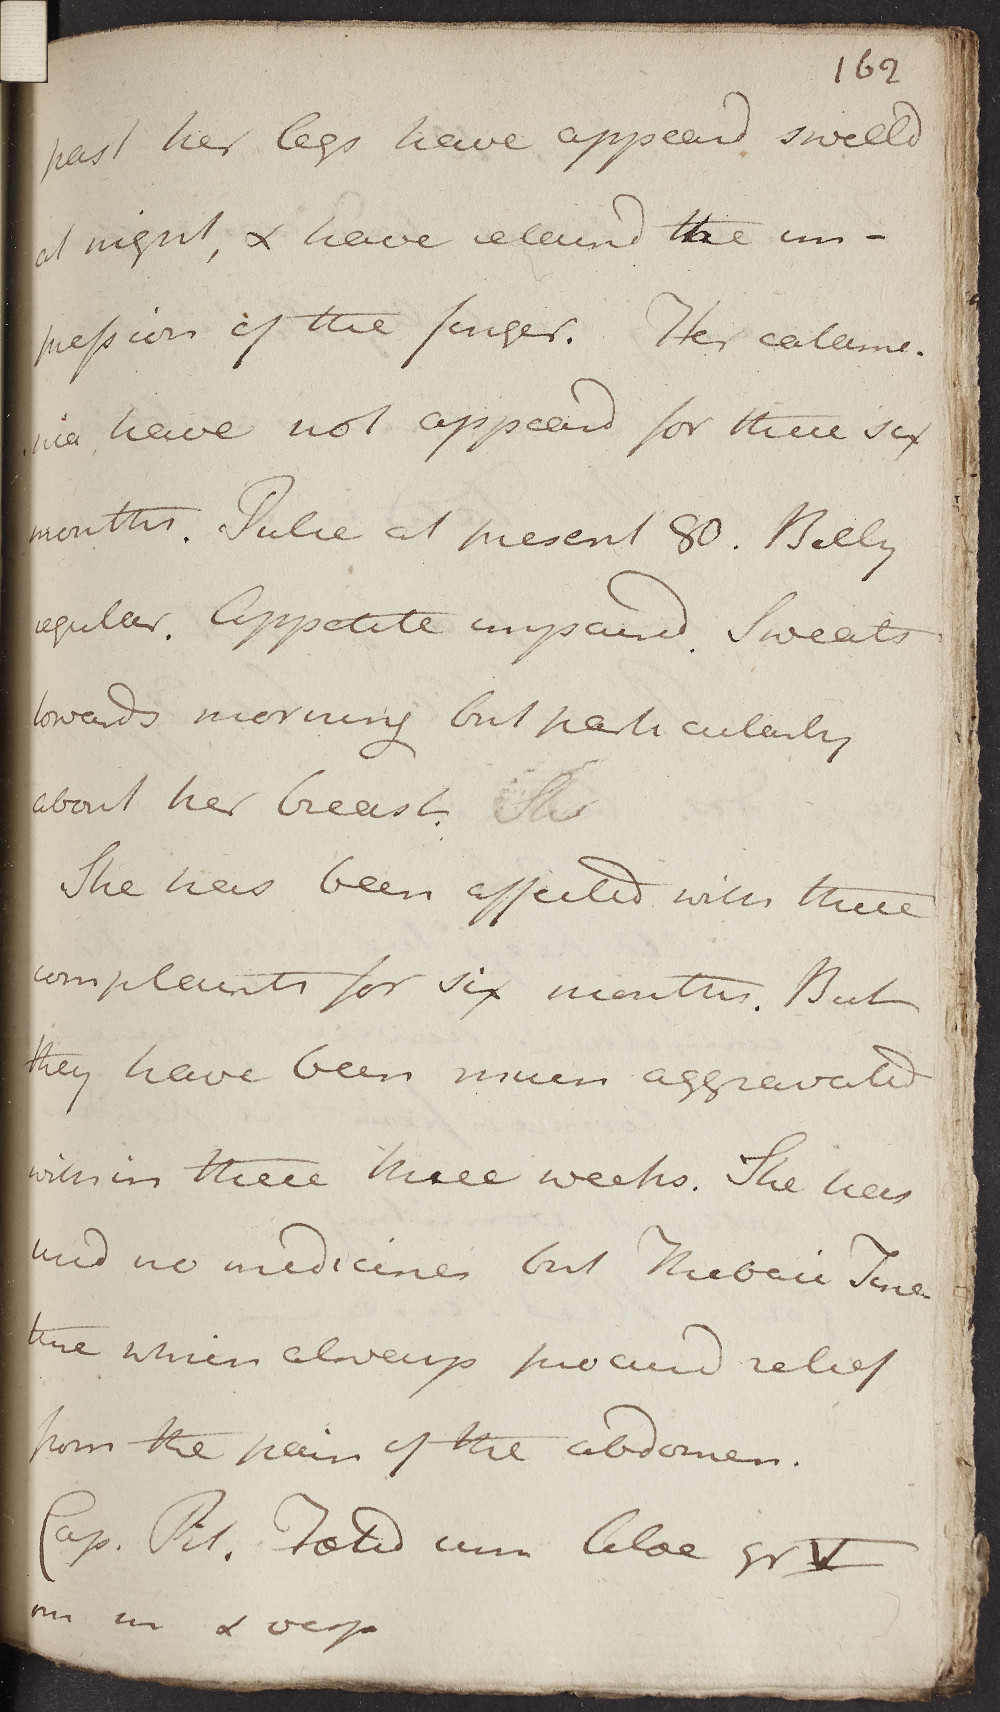 162
past her legs have appeard swelld
at night, & have retaind the im-
pression of the finger. Her catame-
nia have not appeard for these six
months. Pulse at present 80. Belly
regular. Appetite impaird. Sweats
towards morning but particularly
about her breast. She
She has been affected with these
complaints for six months. But
they have been much aggravated
within these three weeks. She has
used no medicines but Thebaic Tinc-
ture which always procured relief
from the pain of the abdomen.
Cap. Pil. Foetid cum Aloe gr V
om m & vesp